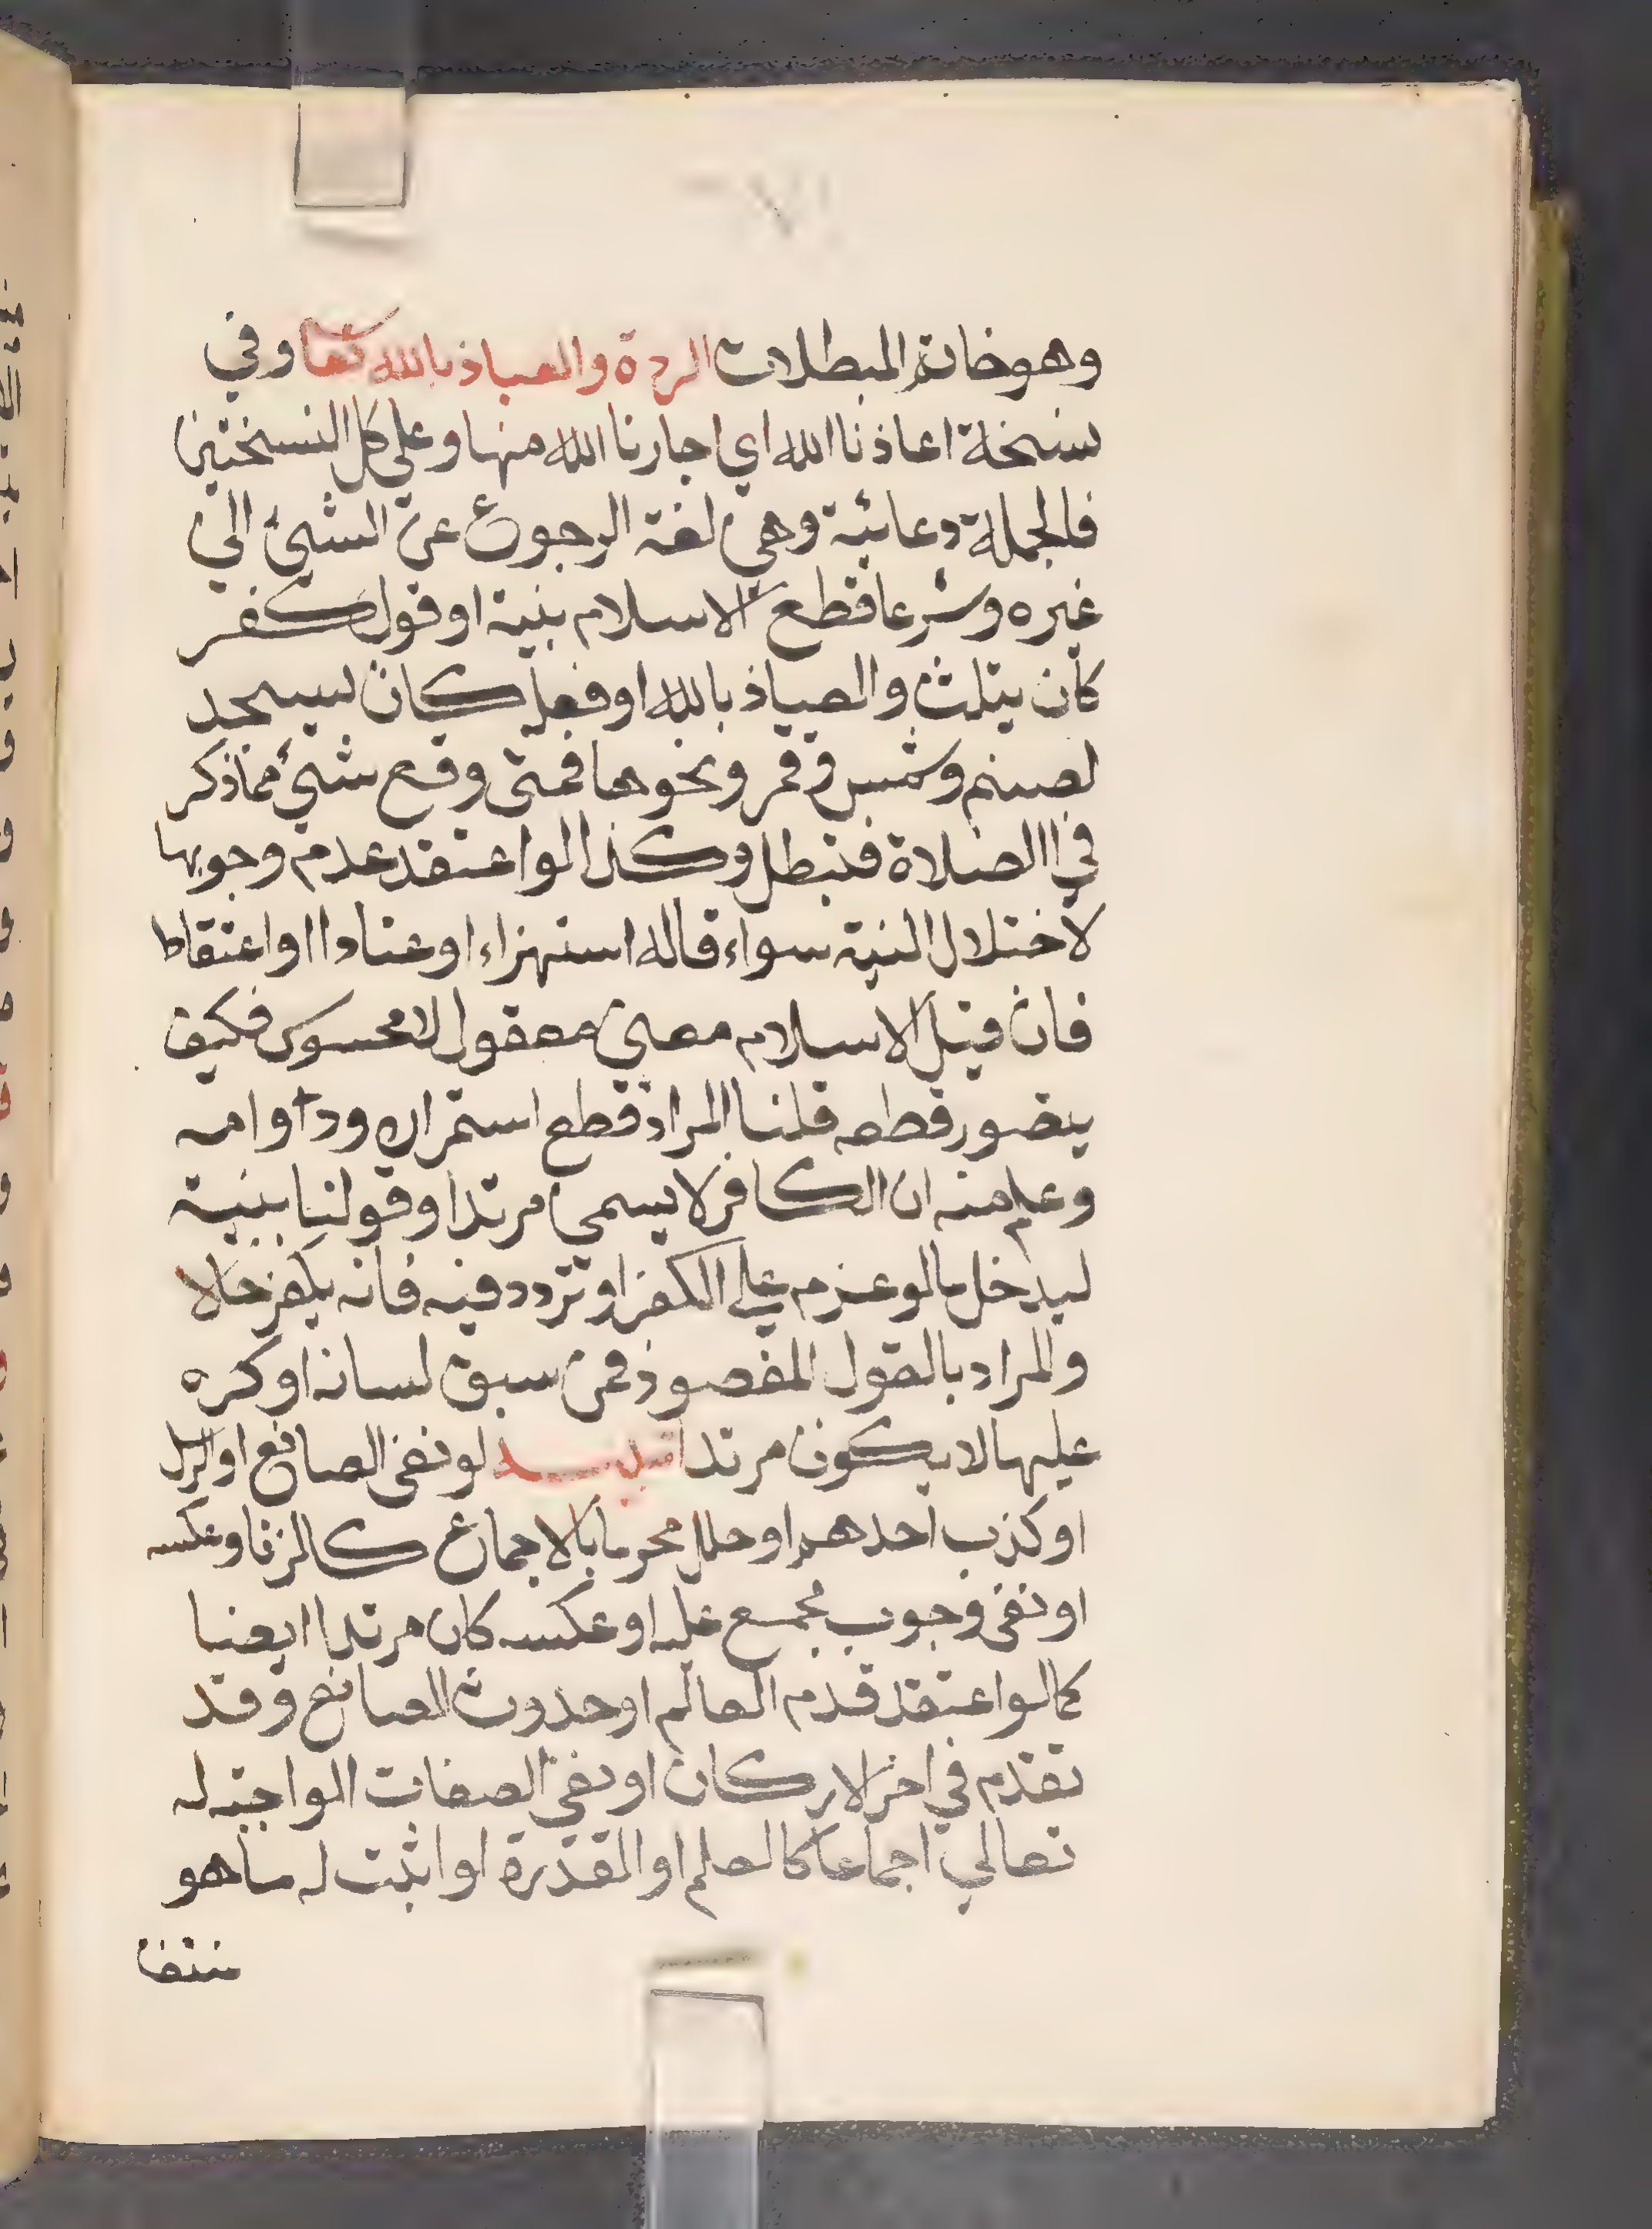 وهو خاتمة المبطلات الردة والعياذ بالله تعا وفي
نسخة اعاذنا الله اي اجارنا الله منها وعلى كل النسختين
فالجملة دعائية وهي لغة الرجوع عن الشيئ الي
غيره وشرعا قطع الاسلام بنية او قول كفر
كان يثلث والعياذ بالله او فعل كان يسجد
لصنم وشمس وقمر ونحوها فمتى وقع شيئ مما ذكر
في الصلاة فتبطل وكذا لو اعتقد عدم وجوبها
لاختلال النية سواء قاله استهزاء او عنادا او اعتقادا
فان قيل الاسلام معنى معقول لا محسوس فكيف
يتصور قطعه قلنا المراد قطع استمراره ودوامه
وعلم منه ان الكافر لا يسمى مرتدا وقولنا بنية
ليدخل ما لو عزم على الكفر او تردد فيه فانه يكفر حالا
والمراد بالقول المقصود فمن سبق لسانه او كره
عليها لا يكون مرتدا تنبيه لو نفى الصانع او الرسل
او كذب احدهم او حلل محرما بالاجماع كالزنا وعكسه
او نفى وجوب مجمع عليه او عكسه كان مرتدا ايضا
كما لو اعتقد قدم العالم او حدوث الصانع وقد
تقدم في اخر الاركان او نفى الصفات الواجبة له
تعالي اجماعا كالعلم او القدرة او اثبت له ما هو